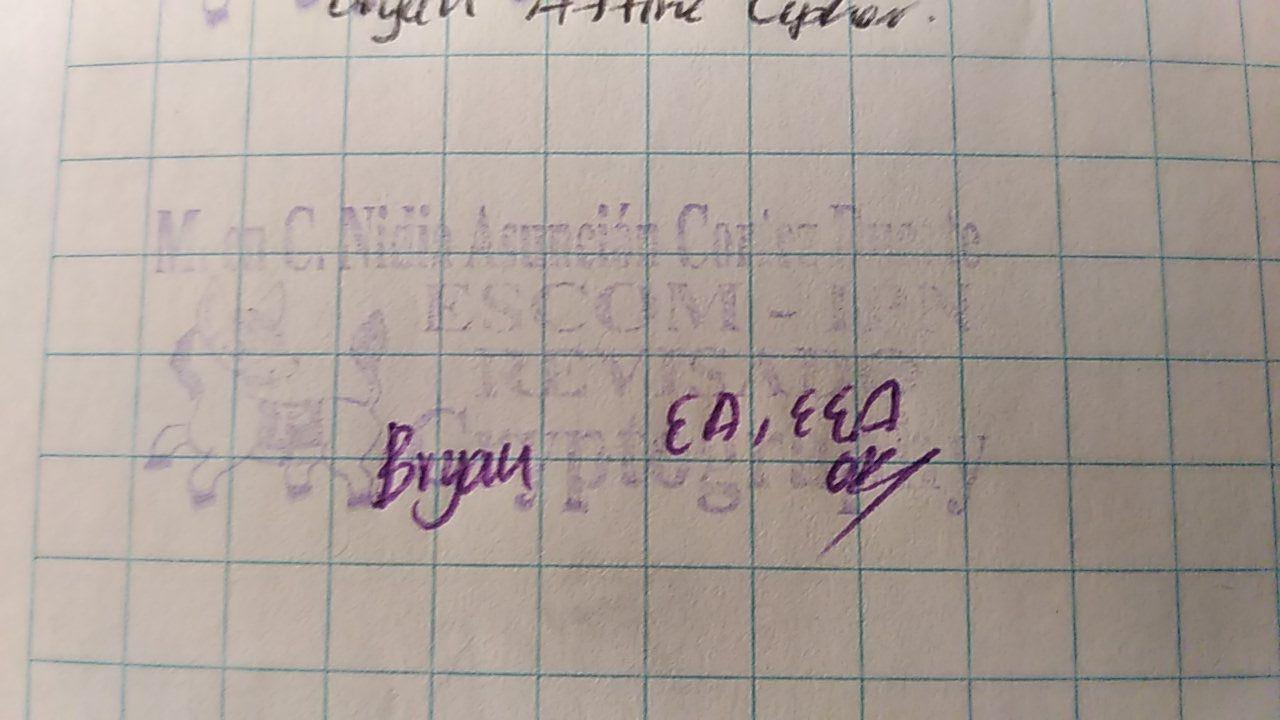 Bryan Affine Cipher.
M. en C. Nidia Asunción Cortez Duarte
ESCOM - IPN
REVISADO
Cryptography
Bryan EA, EEA
OK